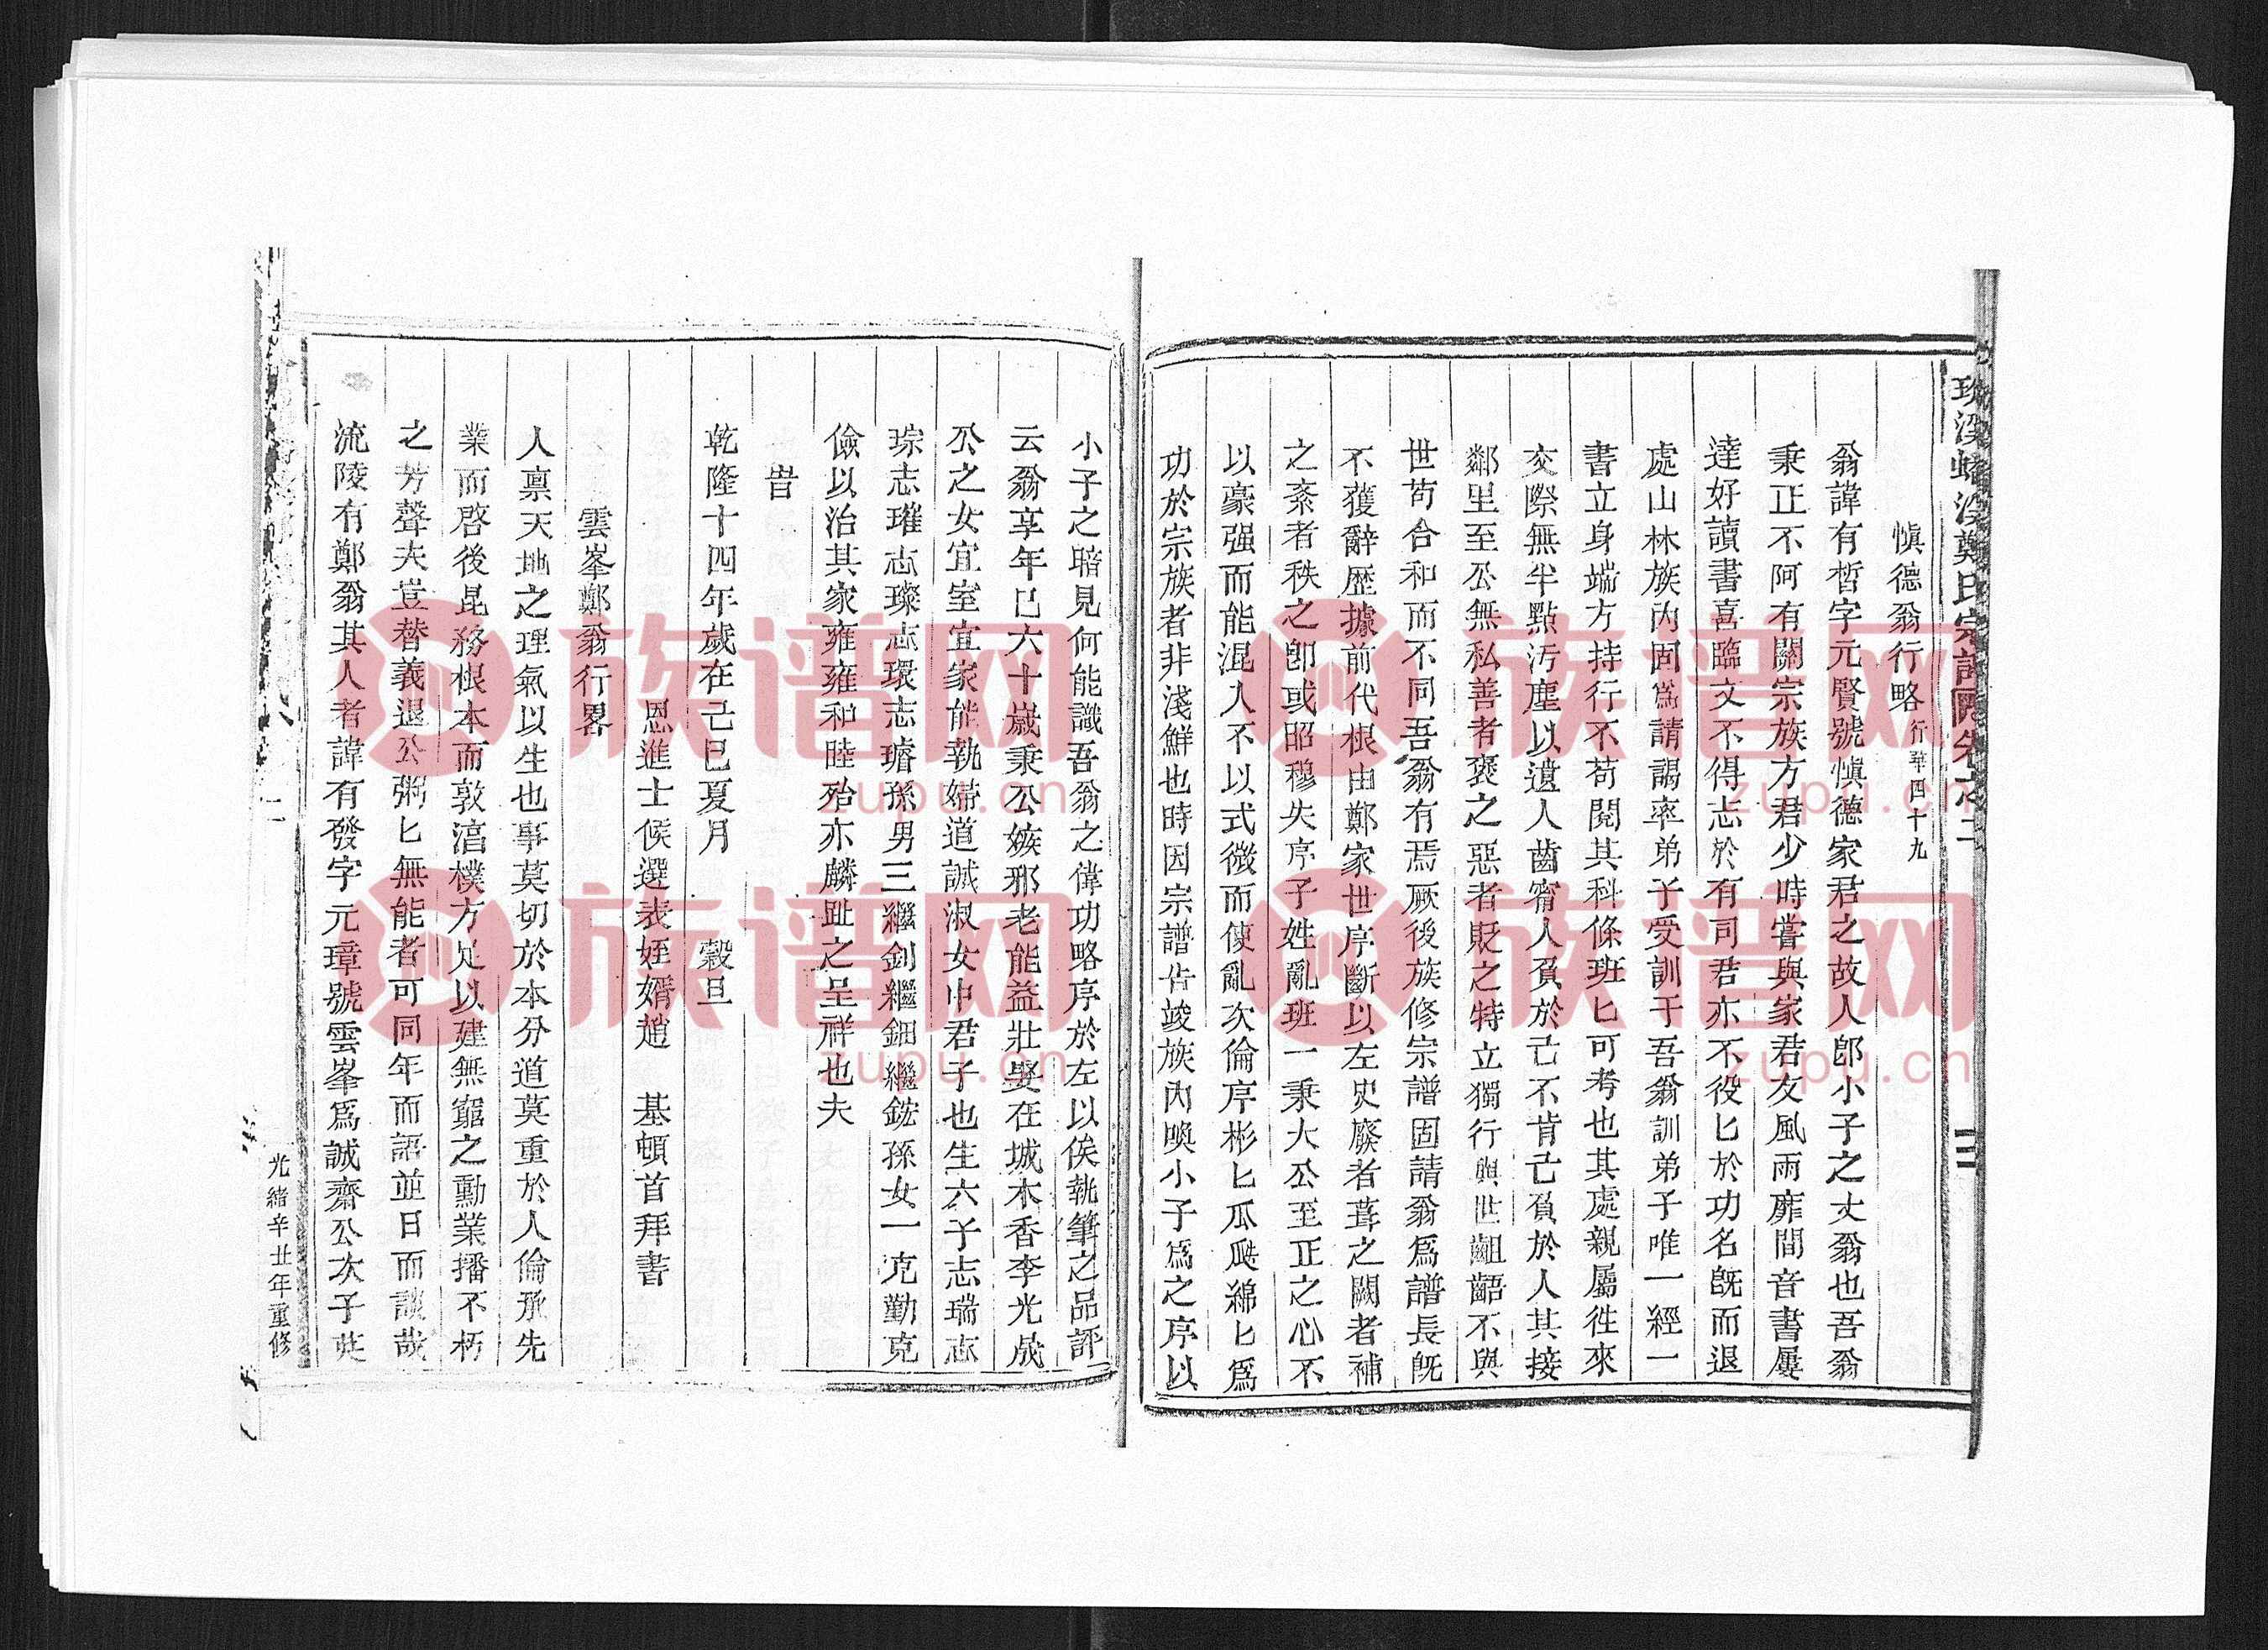 愼德翁行略行華四十九
翁諱有晳字元賢號愼德家君之故人卽小子之丈翁也吾翁
秉正不阿有關宗族方君少時嘗與家君友風雨靡間音書屢
達好讀書喜臨文不得志於有司君亦不役匕於功名旣而退
處山林族內固爲請謁率弟子受訓于吾翁訓弟子唯一經一
書立身端方持行不苟閱其科條班匕可考也其處親屬徃來
交際無半點汚塵以遺人齒甯人負於亡不肯亡負於人其接
鄰里至公無私善者褒之惡者貶之特立獨行與世齟齬不與
世苟合和而不同吾翁有焉厥後族修宗譜固請翁爲譜長旣
不獲辭歷據前代根由鄭家世序斷以左史廢者葺之闕者補
之紊者秩之卽或昭穆失序子姓亂班一秉大公至正之心不
以豪强而能混入不以式微而使亂次倫序彬匕瓜瓞綿匕爲
功於宗族者非淺鮮也時因宗譜告竣族內喚小子爲之序以
小子之暗見何能識吾翁之偉功略序於左以俟執筆之品評
云翁享年已六十歲秉公嫉邪老能益壯娶在城木香李光成
公之女宜室宜家能執婦道誠淑女中君子也生六子志瑞志
琮志璀志璨志環志璿孫男三繼釗繼鈿繼鋐孫女一克勤克
儉以治其家雍雍和睦殆亦麟趾之呈祥也夫
旹
乾隆十四年歲在己巳夏月　穀旦
恩進士候選表姪婿趙　基頓首拜書
雲峯鄭翁行畧
人禀天地之理氣以生也事莫切於本分道莫重於人倫承先
業而啓後昆務根本而敦湻樸方足以建無窮之勳業播不朽
之芳聲夫豈替義退公粥匕無能者可同年而語並日而談哉
流陵有鄭翁其人者諱有發字元璋號雲峯爲誠齋公次子英
光緒辛丑年重修